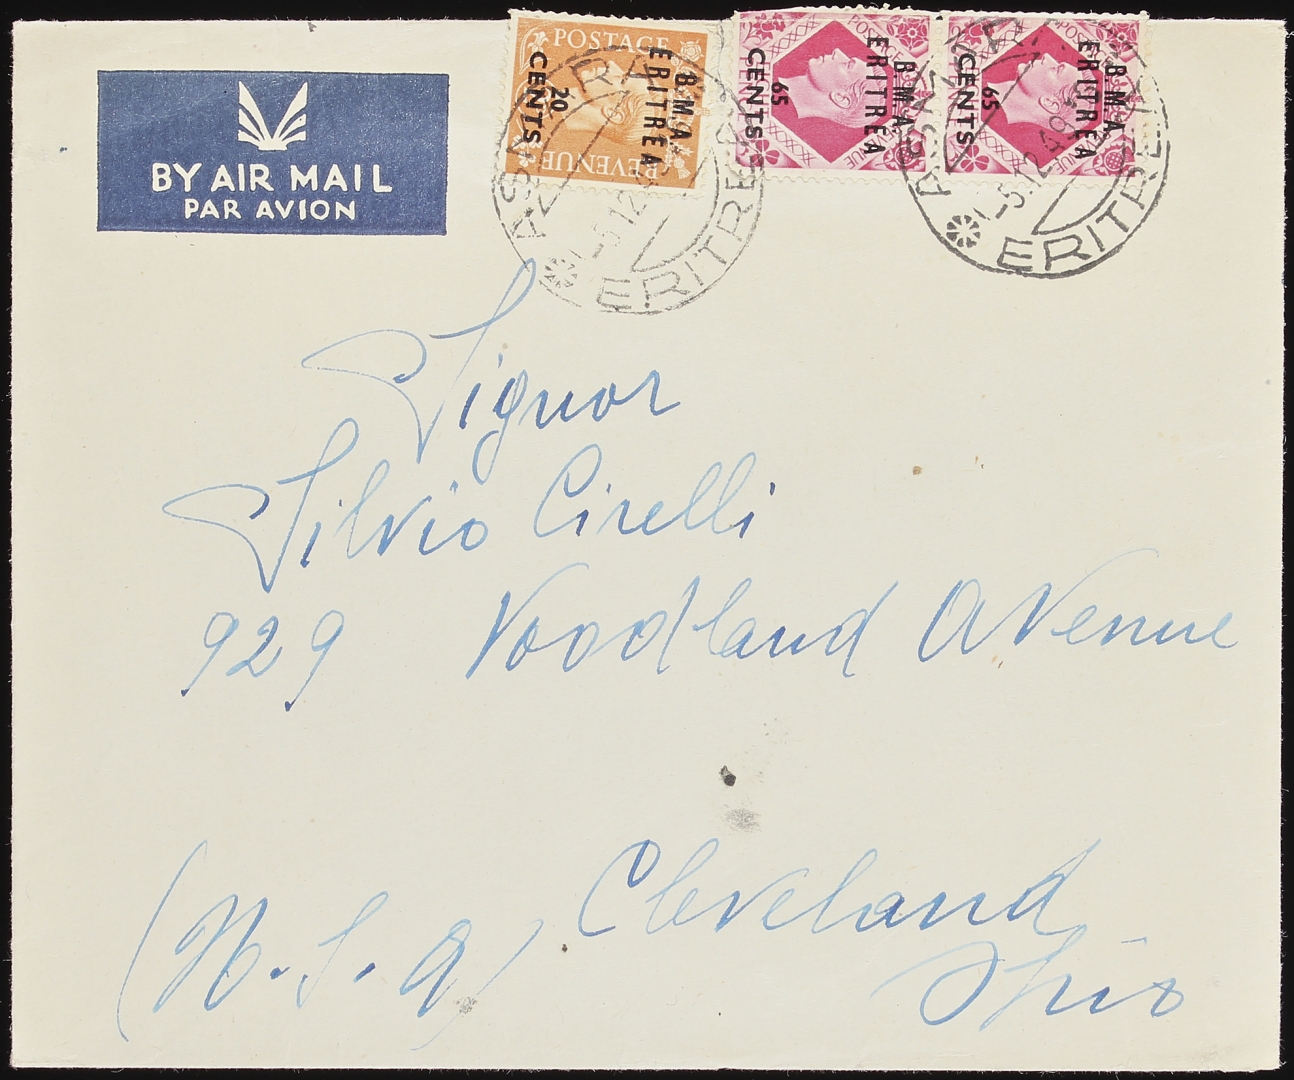 BY AIR MAIL
PAR AVION
POSTAGE
REVENUE
B.M.A.
ERITREA
20
CENTS
B.M.A.
ERITREA
65
CENTS
B.M.A.
ERITREA
65
CENTS
-5.12.49
ERITREA
-5.12.49
ERITREA
Signor
Silvio Cirelli
929 Woodland Avenue
Cleveland
Ohio
(U.S.A)